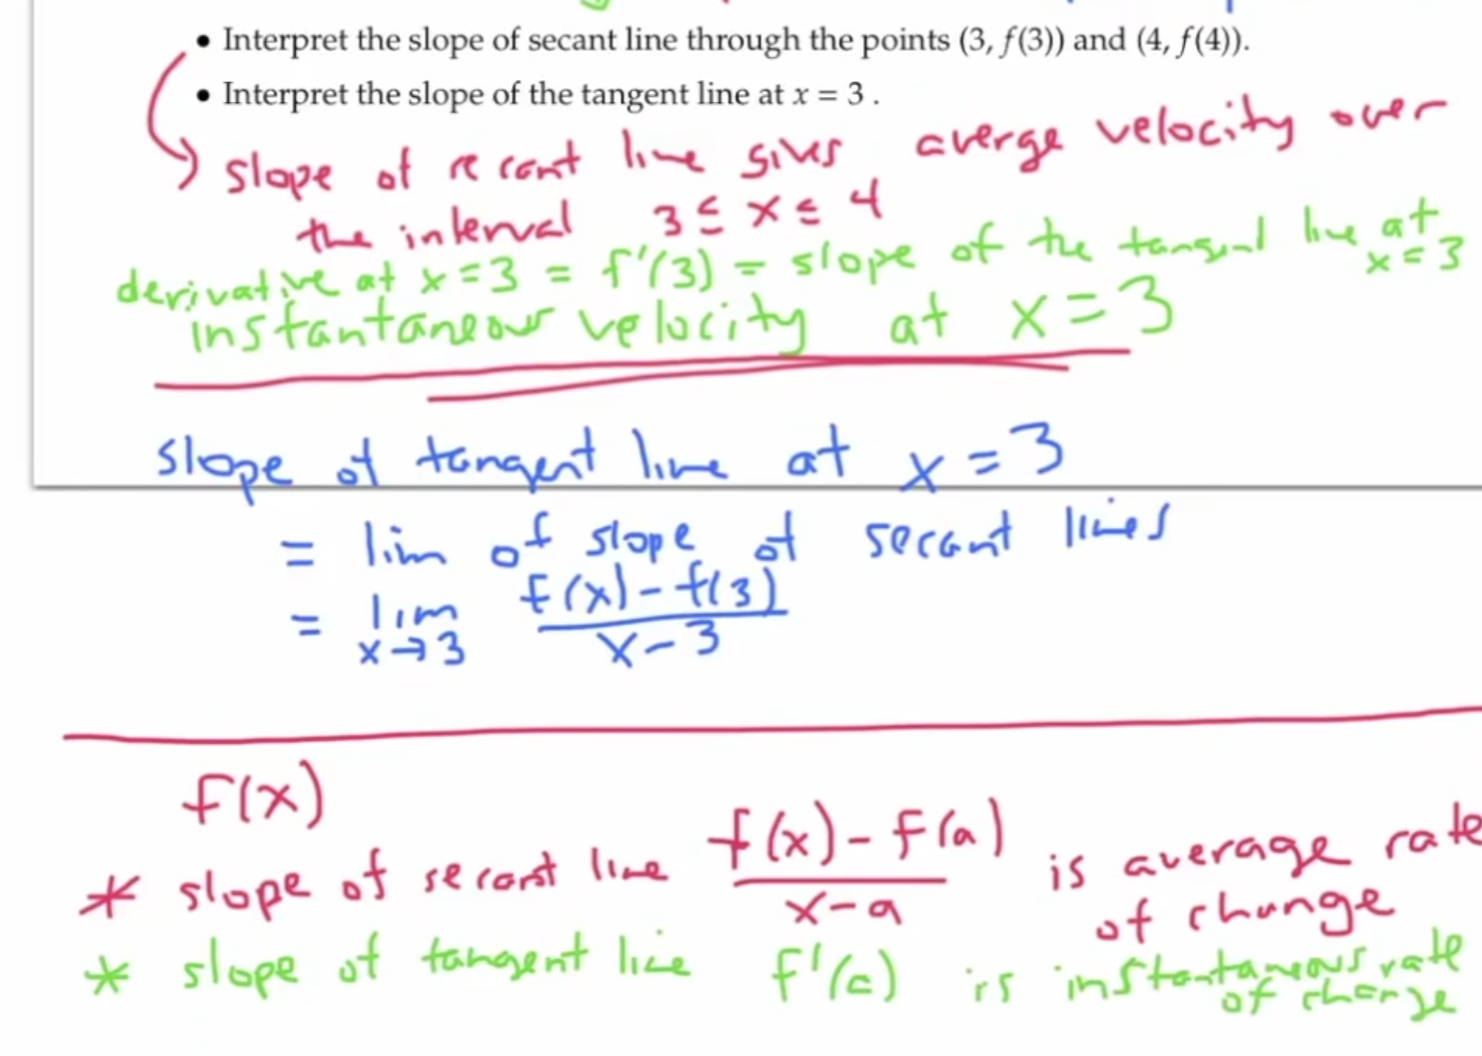 • Interpret the slope of secant line through the points (3, f(3)) and (4, f(4)).
• Interpret the slope of the tangent line at x = 3 .
slope of secant line gives averge velocity over
the interval 3 ≤ x ≤ 4
derivative at x = 3 = f'(3) = slope of the tangent line at x = 3
instantaneous velocity at x = 3
slope of tangent line at x = 3
= lim of slope of secant lines
= lim x→3 f(x) - f(3) / x - 3
f(x)
* slope of secant line f(x) - f(a) / x - a is average rate of change
* slope of tangent line f'(a) is instantaneous rate of change